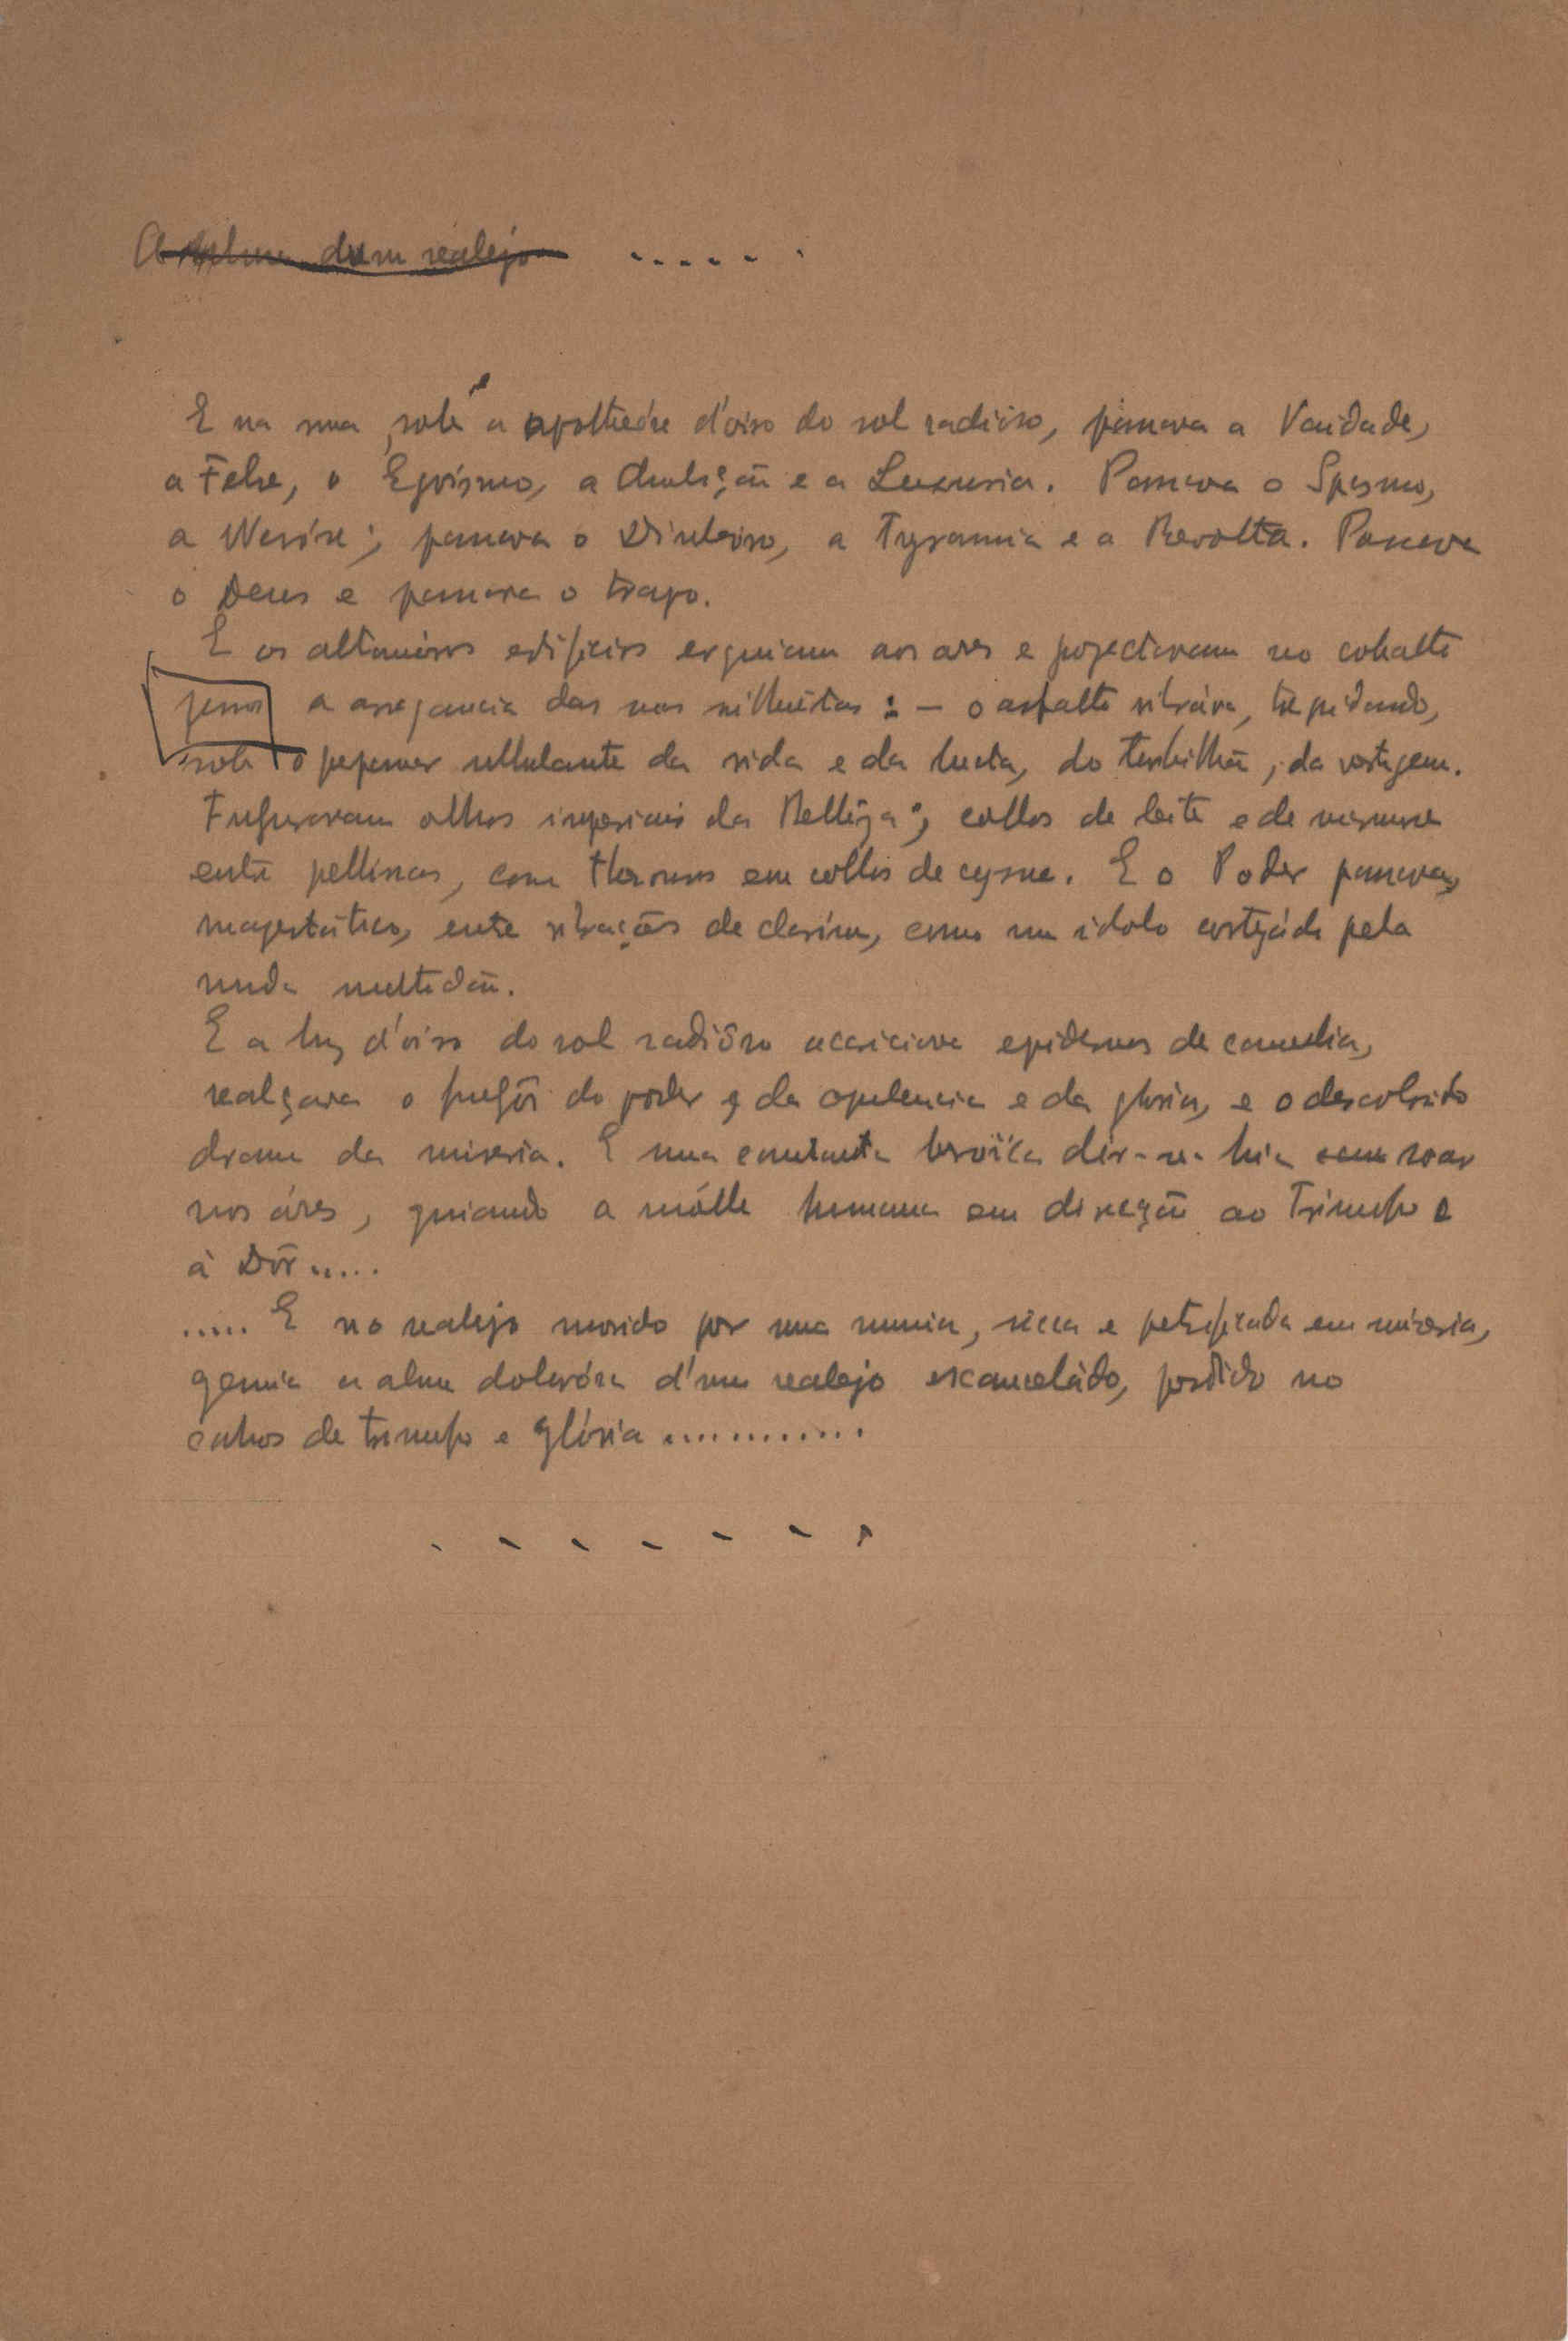 A alma dum realejo ......
E na rua, sob a apotheóse d'oiro do sol radiôso, passava a Vaidade,
a Febre, o Egoísmo, a Ambição e a Luxuria. Passava o Spasmo,
a Nevróse; passava o Dinheiro, a Tyrannia e a Revolta. Passava
o Deus e passava o trapo.
E os altaneiros edificios erguiam aos ares e projectavam no cobalto
a arrogancia das suas silhuêtas : — o asfalto vibráva, trepidando,
sob o perpassar ullulante da vida e da lucta, do turbilhão, da vertigem.
Fulguravam olhos imperiais da Bellêza; collos de leite e de
entre pellissas, como em collos de cysne. E o Poder passava,
magestático, entre vibrações de clarim, como um idolo cortejádo pela
muda multidão.
E a luz d'oiro do sol radiôso acariciava epidermes de camelia,
realçava o fulgôr do poder e da opulencia e da gloria, e o descolorido
drama da miseria. E uma cantata heroïca dir-se-hia soar
nos áres, guiando a mólle humana em direcção ao Triumfo e
à Dôr.....
..... E no realejo movido por uma mumia, sêcca e petrificada em miseria,
gemia a alma dolorósa d'um realejo escanceládo, perdido no
cahos de triumfo e glória ............
. . . . . . .